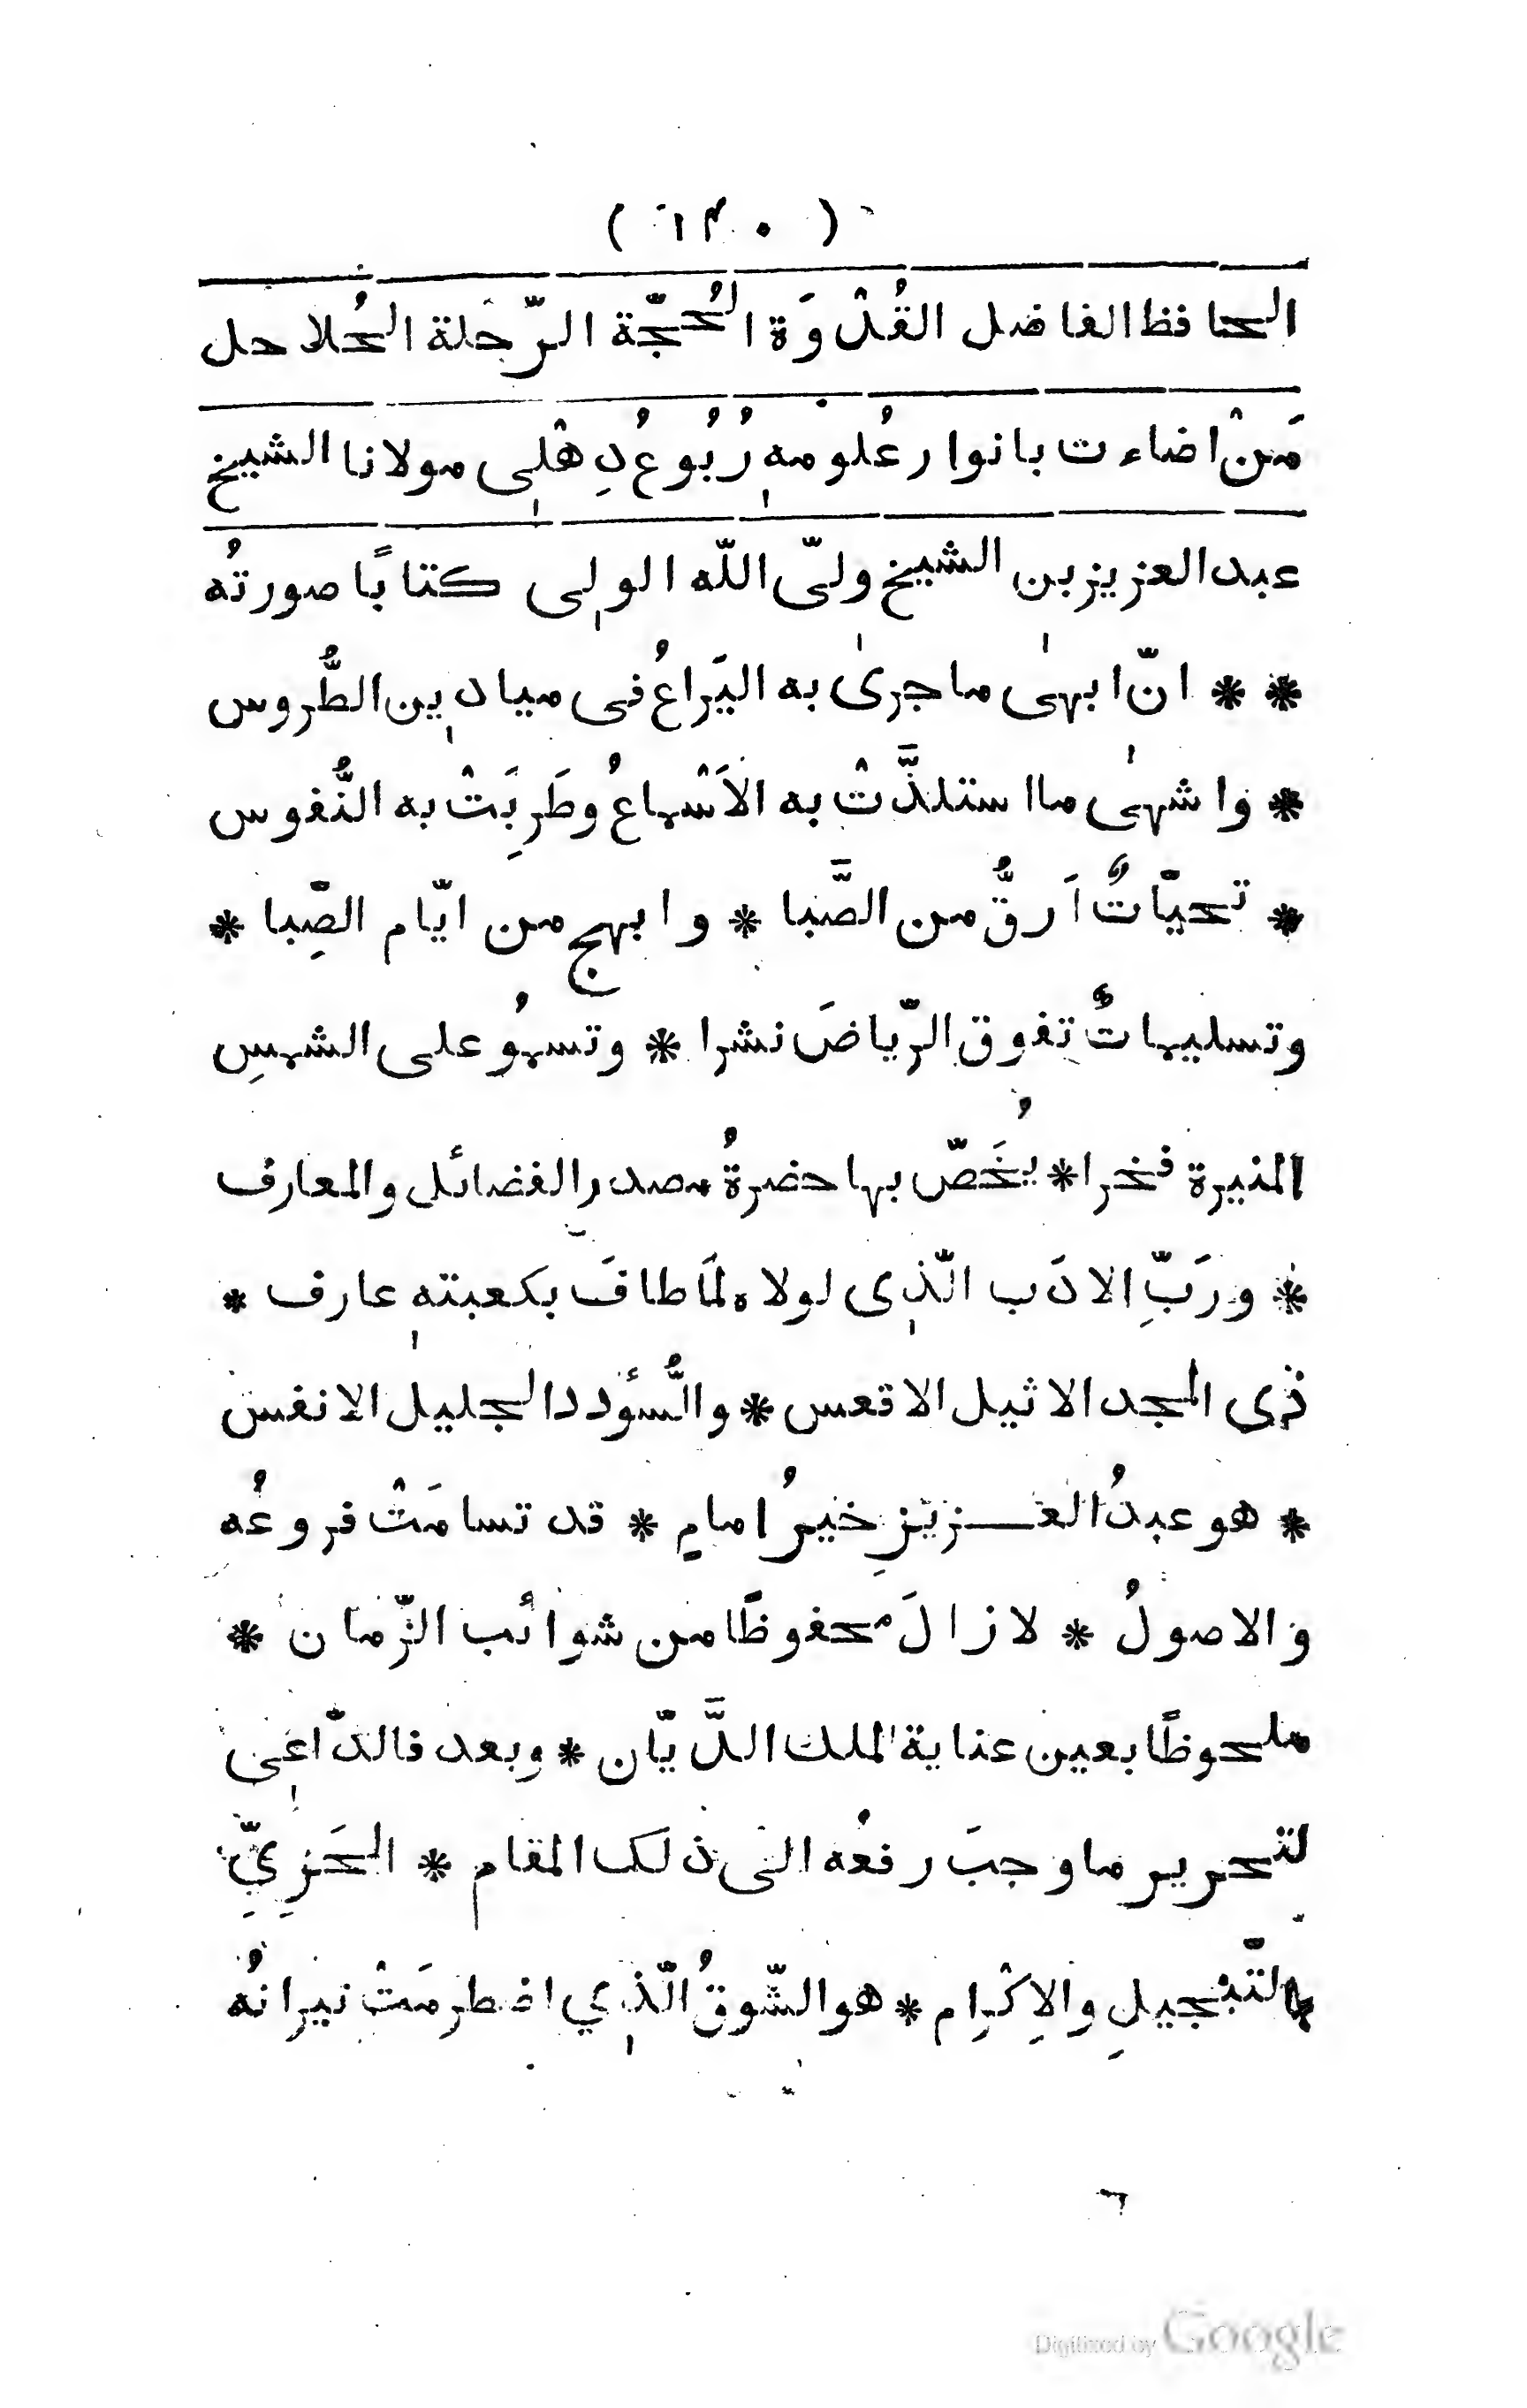 ( ١٣٠ )
الحافظ الفاضل القُدْوَة الحُجّة الرّحلة الحُلاحل
مَنْ اضاءت بانوار عُلومهٖ رُبُوعُ دِهْلِى مولانا الشيخ
عبد العزيز بن الشيخ ولىّ اللّه الولى كتابًا صورتُه
* * انّ ابهىٰ ما جرىٰ به اليَراعُ فى ميادين الطُّروس
* واشهىٰ ما استلذَّتْ به الاَسْماعُ وطَرِبَتْ به النُّفوس
* تحيّاتٌ اَرقُّ من الصَّبا * وابهج من ايّام الصِّبا *
وتسليماتٌ تفوق الرّياضَ نشرا * وتسمُو على الشمسِ
المنيرة فخرا * يُخَصّ بها حضرةُ مصدر الفضائل والمعارف
* ورَبِّ الادَب الّذى لولاه لمَا طافَ بكعبتهٖ عارف *
ذى المجد الاثيل الاقعس * والسُّؤدد الجليل الانفس
* هو عبدُ العــزيزِ خيرُ امامٍ * قد تسامَتْ فروعُه
والاصولُ * لازالَ محفوظًا من شوائب الزّمان *
ملحوظًا بعين عناية الملك الدَّيّان * وبعد فالدّاعى
لتحرير ما وجبَ رفعُه الى ذلك المقام * الحَرِيِّ
بالتّبْجيلِ والاِكْرام * هو الشّوقُ الّذي اضطرمَتْ نيرانُه
Digitized by Google